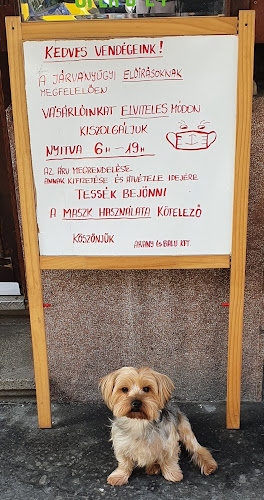 KEDVES VENDÉGEINK!
A JÁRVÁNYÜGYI ELŐÍRÁSOKNAK
MEGFELELŐEN
VÁSÁRLÓINKAT ELVITELES MÓDON
KISZOLGÁLJUK
NYITVA 6H-19H
AZ ÁRU MEGRENDELÉSE
ANNAK KIFIZETÉSE ÉS ÁTVÉTELE IDEJÉRE
TESSÉK BEJÖNNI
A MASZK HASZNÁLATA KÖTELEZŐ
KÖSZÖNJÜK ARANY ÉS BALU KFT.